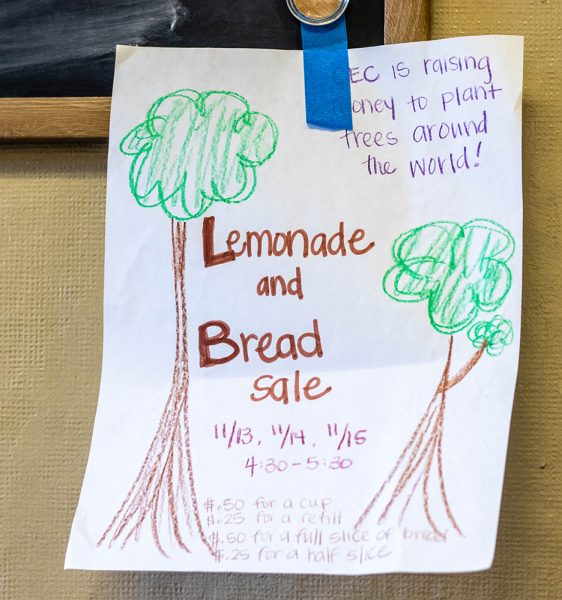 EC is raising
oney to plant
trees around
the world!
Lemonade
and
Bread
sale
11/13, 11/14, 11/15
4:30-5:30
$.50 for a cup
$.25 for a refill
$.50 for a full slice of bread
$.25 for a half slice